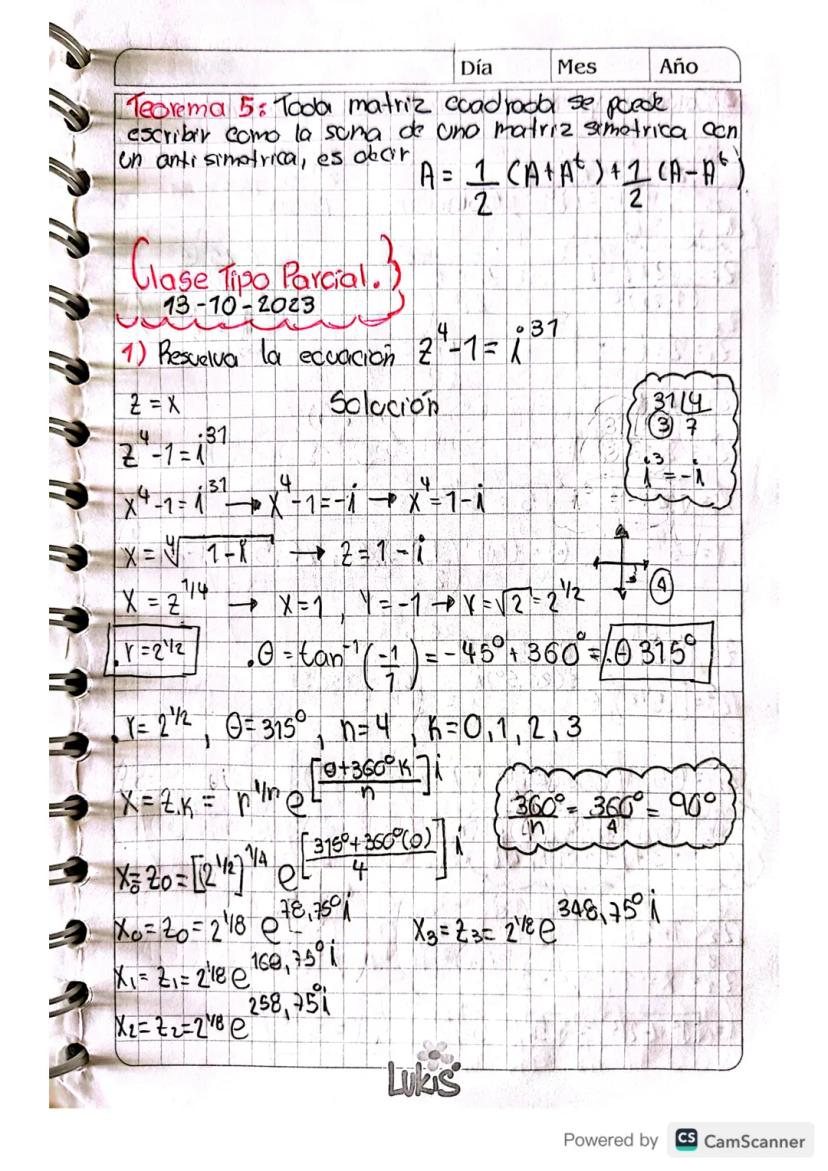 Día Mes Año
Teorema 5: Toda matriz cuadrada se puede
escribir como la suma de una matriz simetrica con
un anti simetrica, es decir A = 1/2 (A+Aᵗ) + 1/2 (A-Aᵗ)
Clase Tipo Parcial.
13-10-2023
1) Resuelva la ecuación z⁴-1=i³¹
z = x Solución
31 4
3 7
i³=-i
z⁴-1=i³¹
x⁴-1=i³¹ → x⁴-1=-i → x⁴=1-i
x = ⁴√1-i → z=1-i
4
x = z^1/4 → x=1, y=-1 → r=√2=2^1/2
r=2^1/2 .θ = tan⁻¹(-1/1) = -45°+360°= .θ 315°
.r=2^1/2, θ=315°, n=4, k=0,1,2,3
x=z.k= r^1/n e^[θ+360°k/n]i
360°/n = 360°/4 = 90°
x₀=z₀=[2^1/2]^1/4 e^[315°+360°(0)/4]i
x₀=z₀=2^1/8 e^78,75°i x₃=z₃=2^1/8 e^348,75°i
x₁=z₁=2^1/8 e^168,75°i
x₂=z₂=2^1/8 e^258,75°i
LUKIS
Powered by CS CamScanner